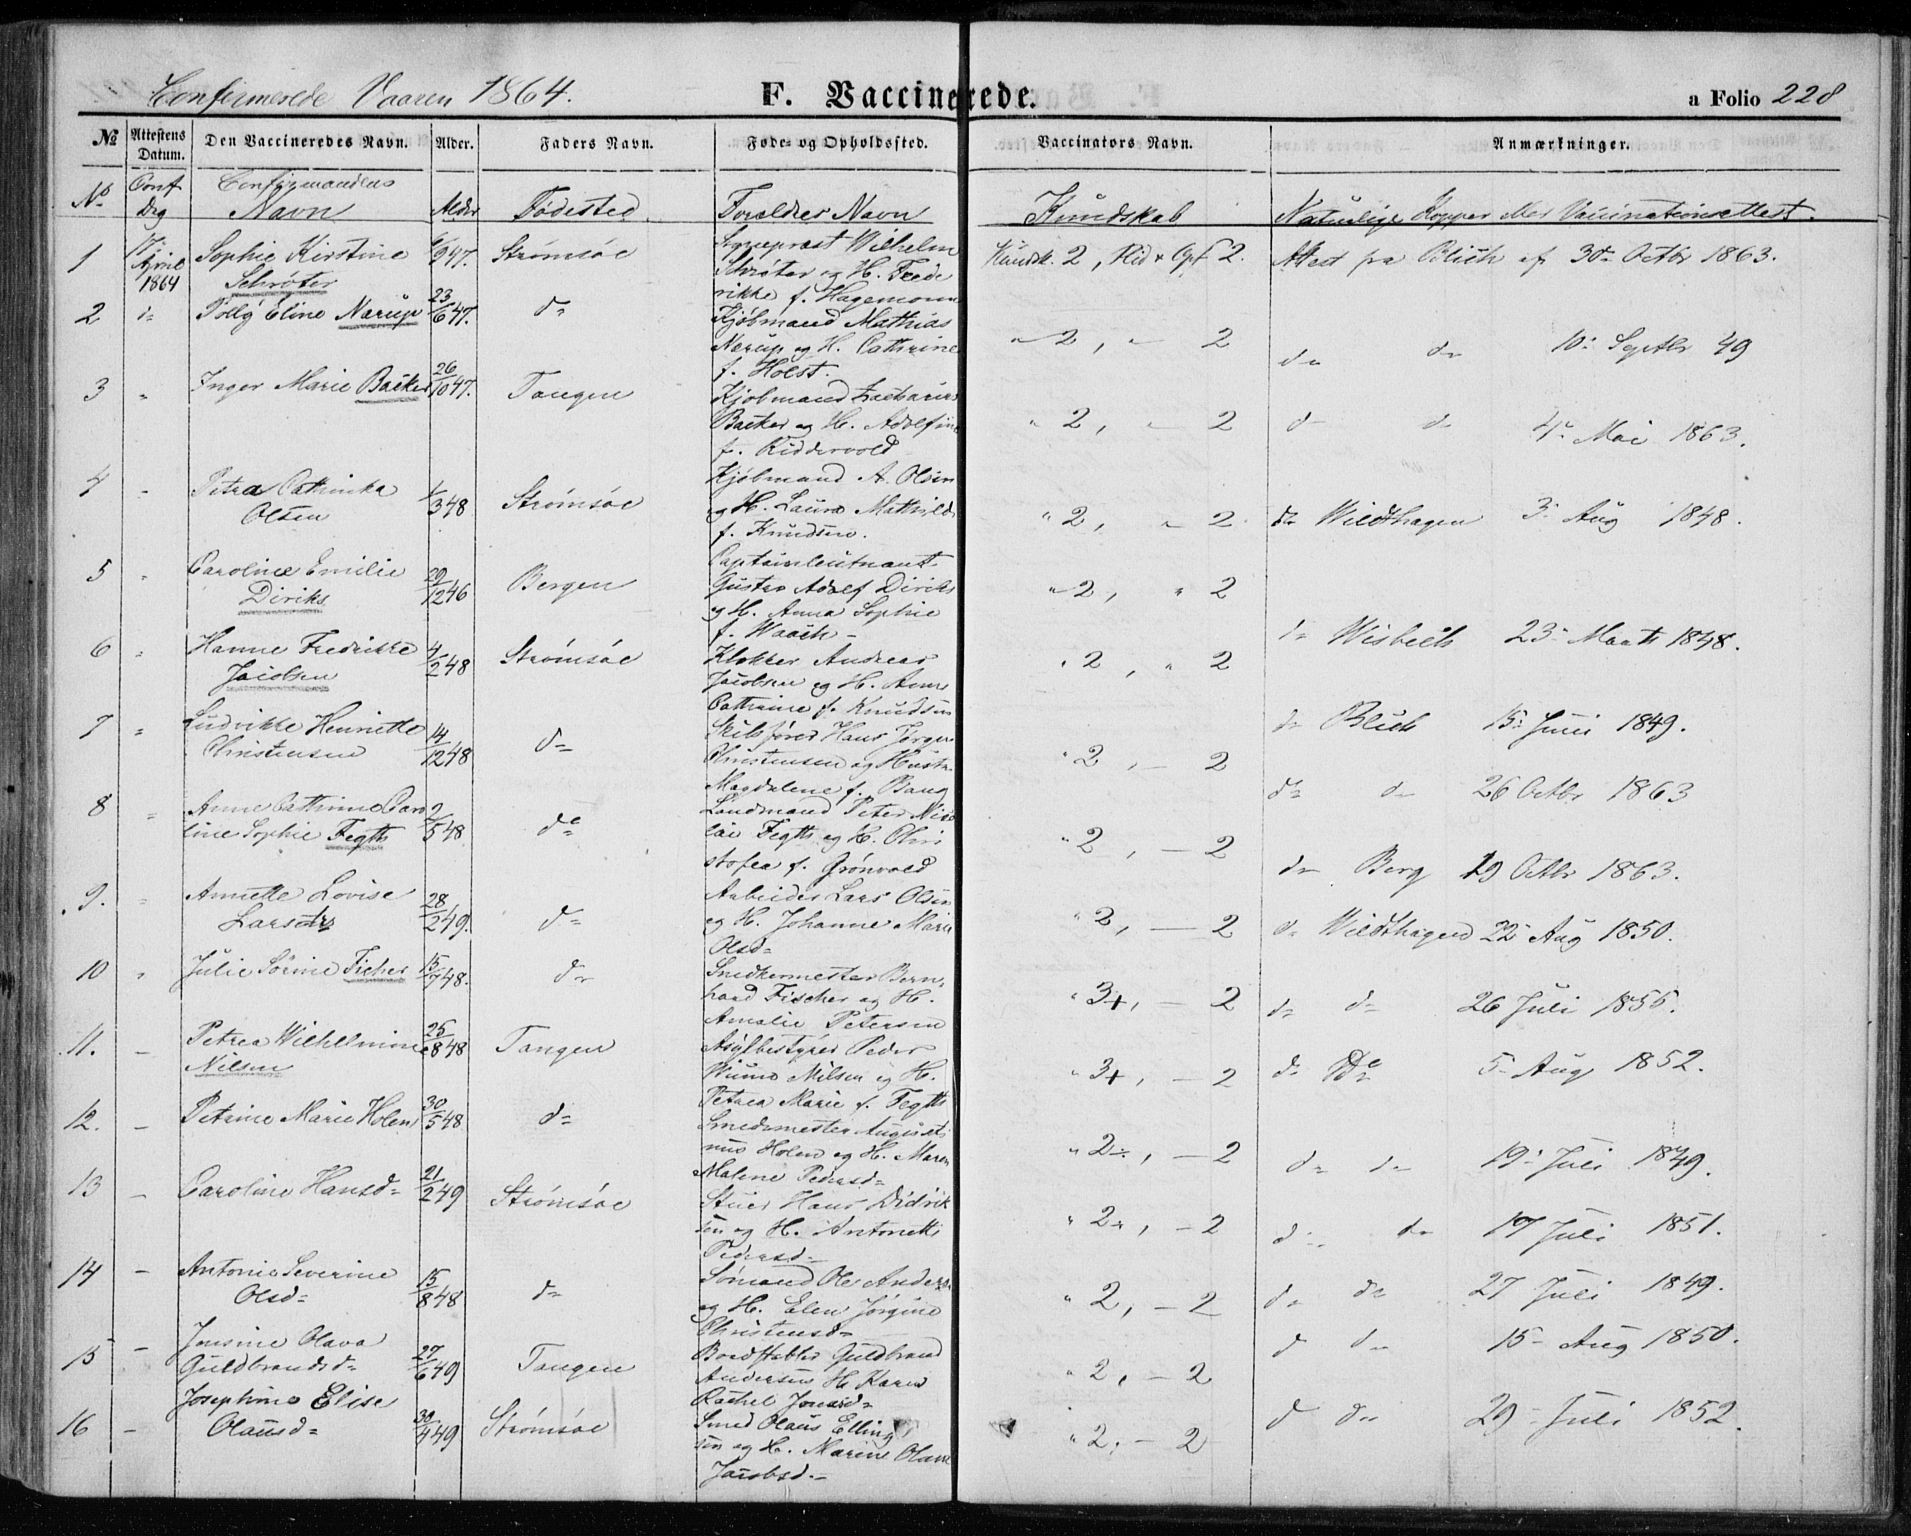 Confirmerede Vaaren 1864. F. Vaccinerede. a Folio 228
No Attestens Datum. Den Vaccineredes Navn. Alder. Faders Navn. Føde- og Opholdssted. Vaccinators Navn. Anmærkninger.
No Conf Dag Confirmandens Navn Alder Fødested Forældres Navn Kundskab Naturlige Kopper eller Vaccinationsattest.
1 17 April 1864 Sophie Kirstine Schrøter /9 47. Strømsøe Sogneprest Wilhelm Schrøter og H. Frederikke f. Hagemann Kundsk. 2, Flid & Opf 2. Attest fra Blich af 30te Octbr 1863.
2 d= Polly Eline Nærup 23/6 47. d= Kjøbmand Mathias Nærup og H. Cathrine f. Holst. " 2, " 2 d= d= 10: Septbr 49
3 " Inger Marie Backer 26/10 47. Tangen Kjøbmand Zacharias Backer og H. Adolfine f. Riddervold " 2, " 2 d= d= 4de Mai 1863.
4 " Petra Cathinka Olsen 1/3 48 Strømsøe Kjøbmand A. Olsen og H. Laura Mathilde f. Knudsen. " 2, " 2. d= Wildthagen 3: Aug 1848.
5 " Caroline Emilie Diriks 29/12 46 Bergen Captainleutnant Gustav Adolf Diriks og H. Anna Sophie f. " 2, " 2 d= Wisbech 23: Marts 1848.
6 " Hanne Fredrikke Jacobsen 4/2 48 Strømsøe Klokker Andreas Jacobsen og H. Anne Cathrine f. Knudsen " 2, " 2 d= Blich 15: Juni 1849.
7 " Ludvikke Henriette Christensen 14/12 48 d= Skibsfører Hans Jørgen Christensen og Hustr. Magdalene f. Bang " 2, – 2 d= d= 26 Octbr 1863
8 " Anne Cathrine Caroline Sophie Fegth 2/5 48 d= Landmand Peter Nicolai Fegth og H. Christofea f. Grønvold " 2, – 2 d= Berg 19 Octbr 1863.
9. " Annette Lovise Larsdtr 28/2 49. d= Arbeider Lars Olsen og H. Johanne Marie Olsd= " 2, – 2 d= Wildthagen 22 Aug 1850.
10 " Julie Sørine Fischer 15/7 48. d= Snedkermester Bernhard Fischer og H. Amalie Petersen " 3+, – 2 d= d= 26 Juli 1855.
11. – Petrea Wilhelmine Nilsen 25/8 48 Tangen Asylbestyrer Peder Nilsen og H. Petrea Marie f. Fegth " 3+, – 2 d= D= 5: Aug 1852.
12. – Petrine Marie Holen 30/5 48 d= Smedemester Augustinus Holen og H. Maren Malene Pedersd= " 2÷, – 2 d= d= 19: Juli 1849.
13 – Caroline Hansd= 21/2 49 Strømsøe Stuer Hans Didriksen og H. Antonette Pedersd= " 2÷, – 2 d= d= 17 Juli 1851.
14 – Antonie Severine Olsd= 15/8 48 d= Sømand Ole Anders. og H. Elen Jørgine Christensd= " 2, – 2 d= d= 27 Juli 1849.
15 – Jensine Olava Guldbrandsd= 27/6 49 Tangen Bordstabler Guldbrand Andersen H. Karen Rachel Jensd= " 2, – 2 d d= 15– Aug 1850.
16 – Josephine Elise Olausd= 30/4 49 Strømsøe Smed Olaus Ellingsen og H. Marine Olave Jacobsd.– " 2, – 2 d d= 29– Juli 1852.